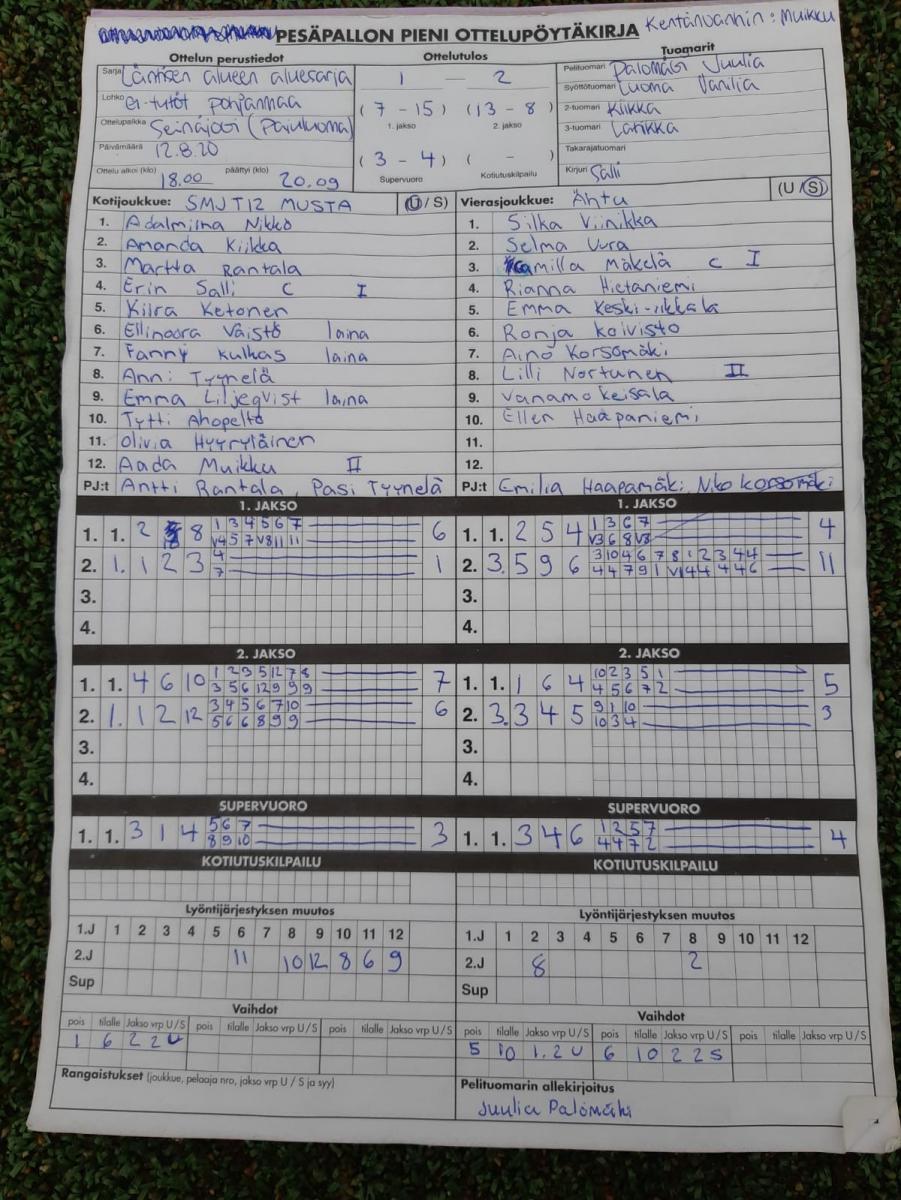 PESÄPALLON PIENI OTTELUPÖYTÄKIRJA Kentänvanhin: Muikku
Ottelun perustiedot
Sarja Läntisen alueen aluesarja
Lohko en-tytöt pohjanmaa
Ottelupaikka Seinäjoki (Pajuluoma)
Päivämäärä 12.8.20
Ottelu alkoi (klo) 18.00 päättyi (klo) 20.09
Ottelutulos
1 — 2
(7 - 15) (13 - 8)
1. jakso 2. jakso
(3 - 4) ( - )
Supervuoro Kotiutuskilpailu
Tuomarit
Pelituomari Palomäki Juulia
Syöttötuomari Luoma Vanilia
2-tuomari Kiikka
3-tuomari Latikka
Takarajatuomari
Kirjuri Salli
Kotijoukkue: SMJ T12 MUSTA (U / S)
1. Adalmiina Nikko
2. Amanda Kiikka
3. Martta Rantala
4. Erin Salli C I
5. Kiira Ketonen
6. Ellinoora Väistö laina
7. Fanny Kulkas laina
8. Anni Tyynelä
9. Emma Liljeqvist laina
10. Tytti Ahopelto
11. Olivia Hyyryläinen
12. Aada Muikku II
PJ:t Antti Rantala, Pasi Tyynelä
Vierasjoukkue: Ähtu (U / S)
1. Silka Viinikka
2. Selma Vura
3. Camilla Mäkelä C I
4. Rianna Hietaniemi
5. Emma Keski-iikkala
6. Ronja Koivisto
7. Aino Korsomäki
8. Lilli Nortunen II
9. Vanamo Keisala
10. Ellen Haapaniemi
11.
12.
PJ:t Emilia Haapamäki, Niko Korsomäki
1. JAKSO
1. 1. 2 8 1 3 4 5 6 7 6
V4 5 7 V8 11 11
2. 1. 1 2 3 4 1
7
3.
4.
1. JAKSO
1. 1. 2 5 4 1 3 6 7 4
V3 6 8 V3
2. 3. 5 9 6 3 10 4 6 7 8 1 2 3 4 4 11
4 4 7 9 1 V1 4 4 4 4 6
3.
4.
2. JAKSO
1. 1. 4 6 10 1 2 3 5 12 7 8 7
3 5 6 12 9 9 9
2. 1. 12 12 3 4 5 6 7 10 6
5 6 6 8 9 9
3.
4.
2. JAKSO
1. 1. 1 6 4 10 2 3 5 1 5
4 5 6 7 2
2. 3. 3 4 5 9 1 10 3
10 3 4
3.
4.
SUPERVUORO
1. 1. 3 1 4 5 6 7 3
8 9 10
SUPERVUORO
1. 1. 3 4 6 1 2 5 7 4
4 4 7 2
KOTIUTUSKILPAILU
KOTIUTUSKILPAILU
Lyöntijärjestyksen muutos
1.J 1 2 3 4 5 6 7 8 9 10 11 12
2.J 11 10 12 8 6 9
Sup
Lyöntijärjestyksen muutos
1.J 1 2 3 4 5 6 7 8 9 10 11 12
2.J 8 2
Sup
Vaihdot
pois tilalle Jakso vrp U / S pois tilalle Jakso vrp U / S pois tilalle Jakso vrp U / S
1 6 2 2 U
Vaihdot
pois tilalle Jakso vrp U / S pois tilalle Jakso vrp U / S pois tilalle Jakso vrp U / S
5 10 1. 2 U 6 10 2 2 S
Rangaistukset (joukkue, pelaaja nro, jakso vrp U / S ja syy)
Pelituomarin allekirjoitus
Juulia Palomäki